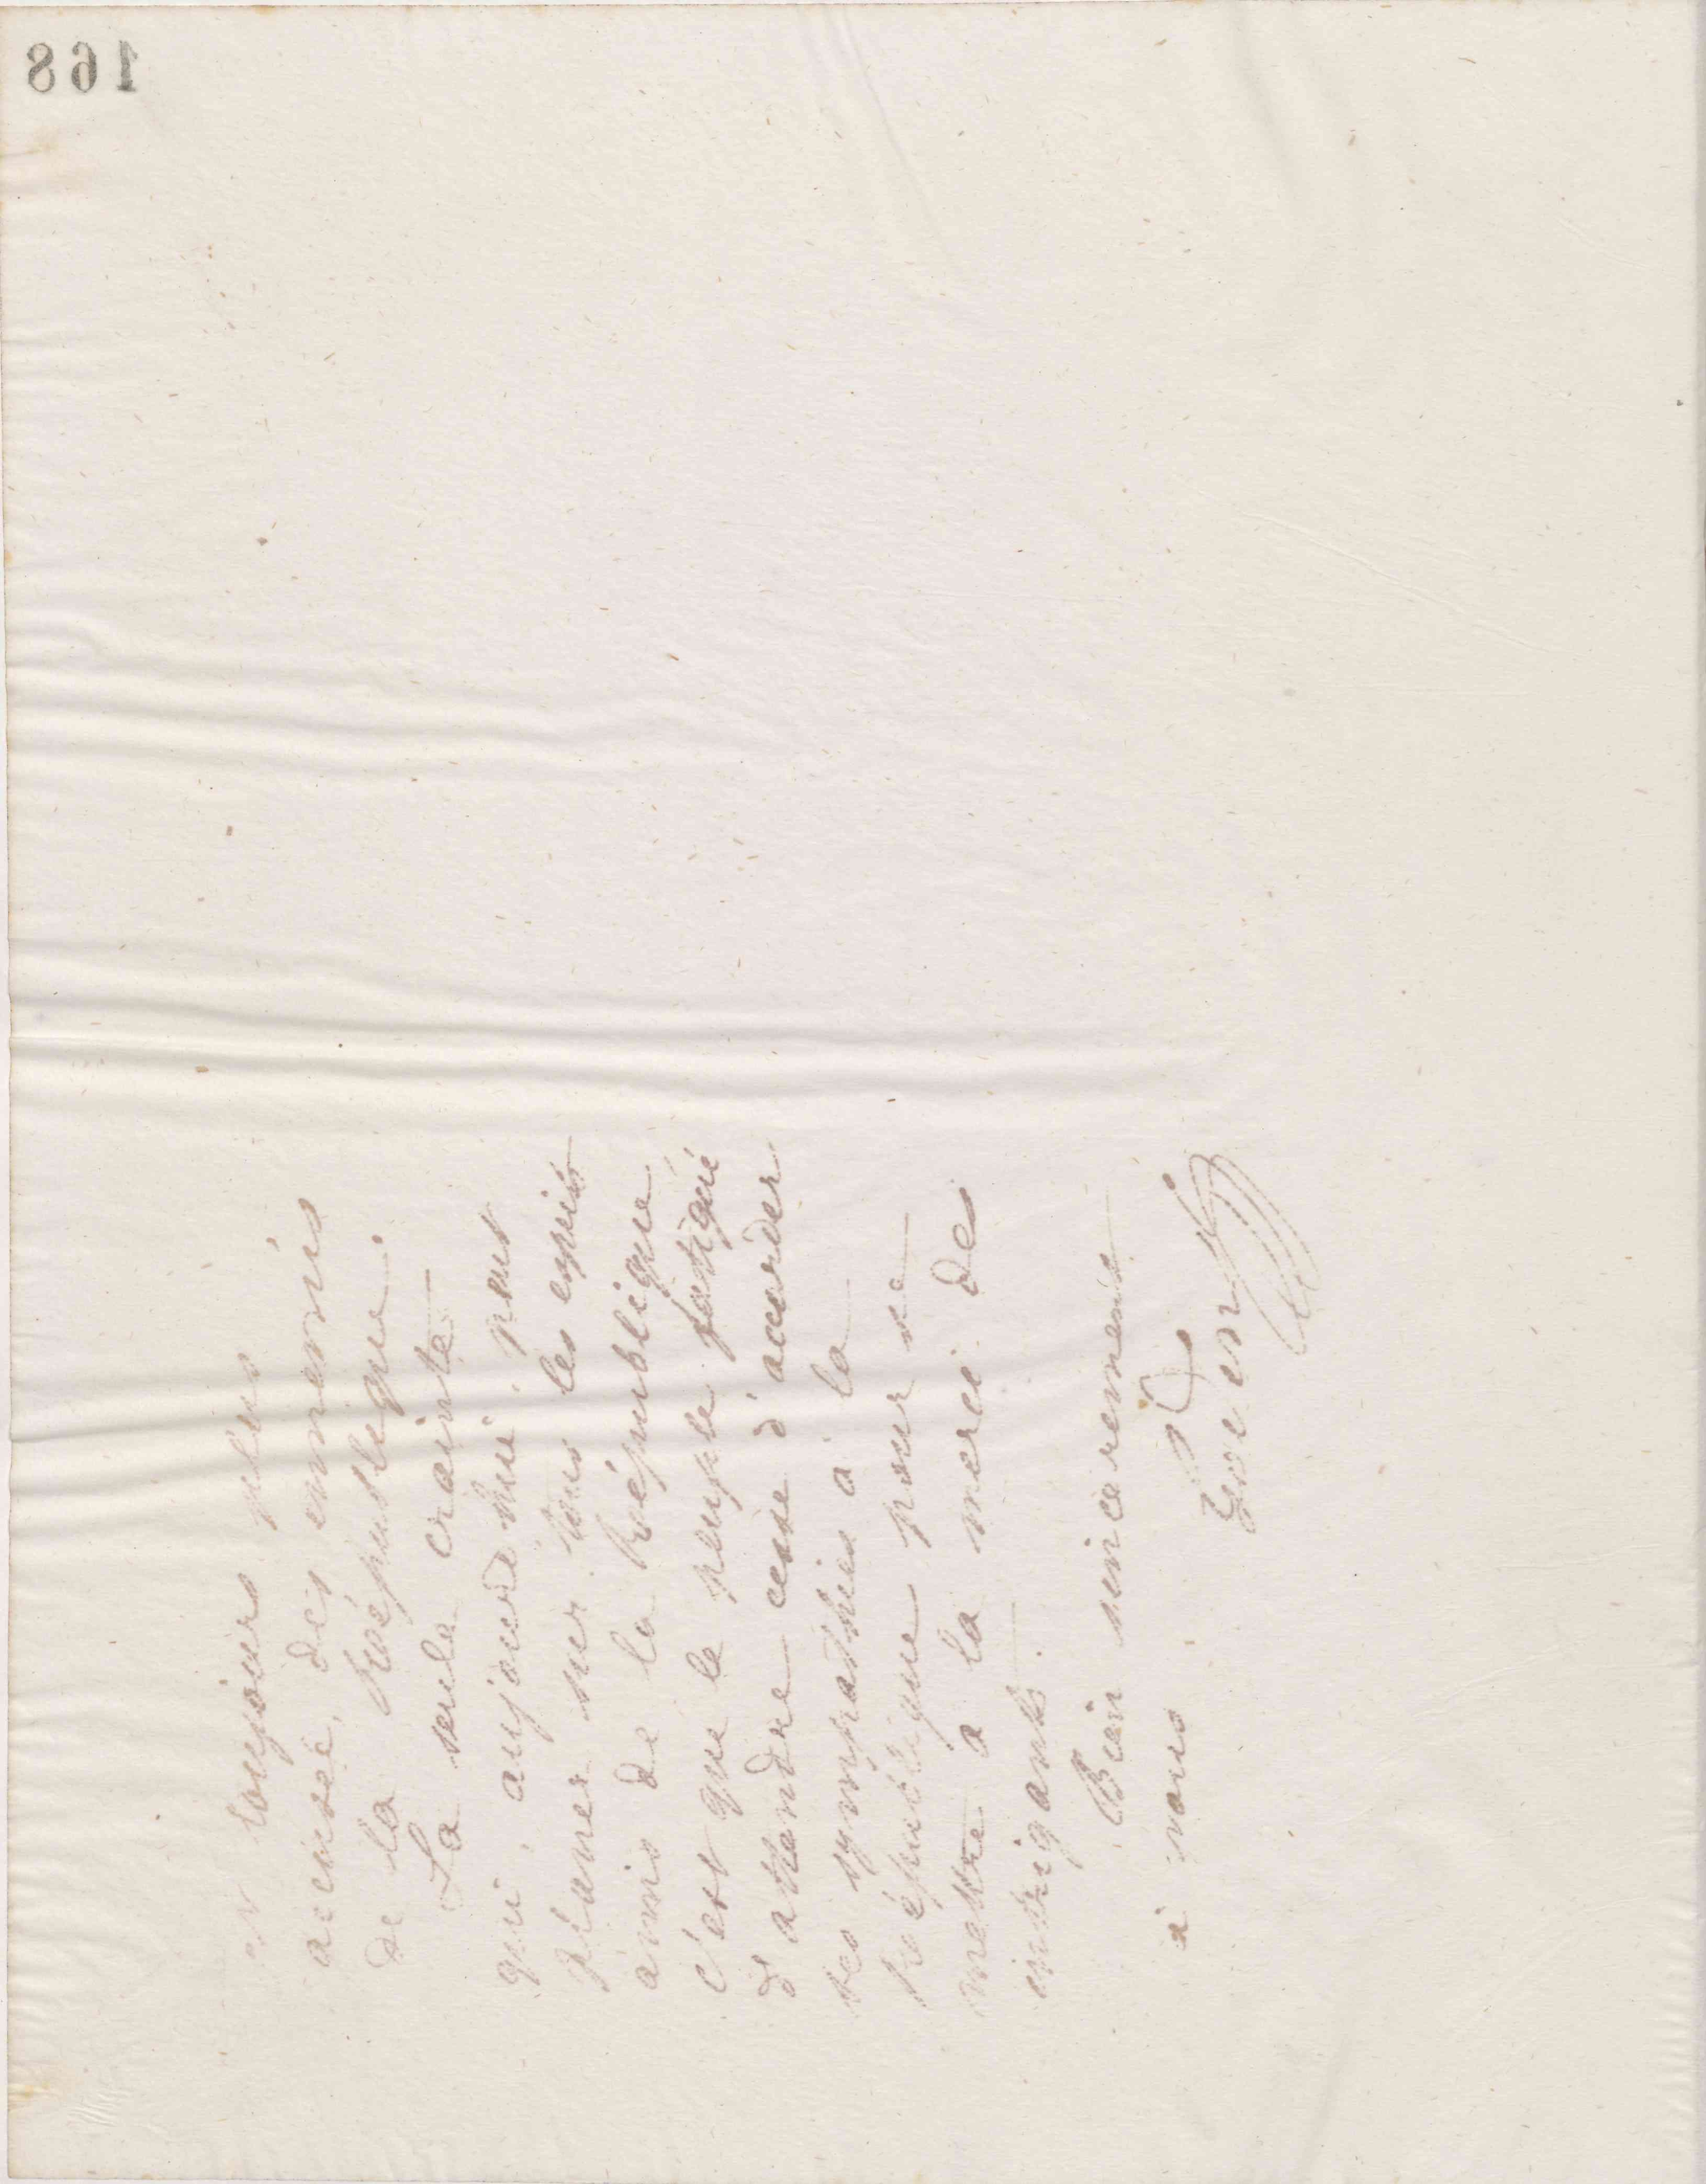 168
et toujours plus
accusée, des ennemis
de la République.
La seule crainte
qui, aujourd'hui peut
planer sur tous les esprits
amis de la République
c'est que le peuple fatigué
d'attendre cesse d'accorder
ses sympathies à la
République pour se
mettre à la merci des
intrigants.
Bien sincèrement
à vous
Godin